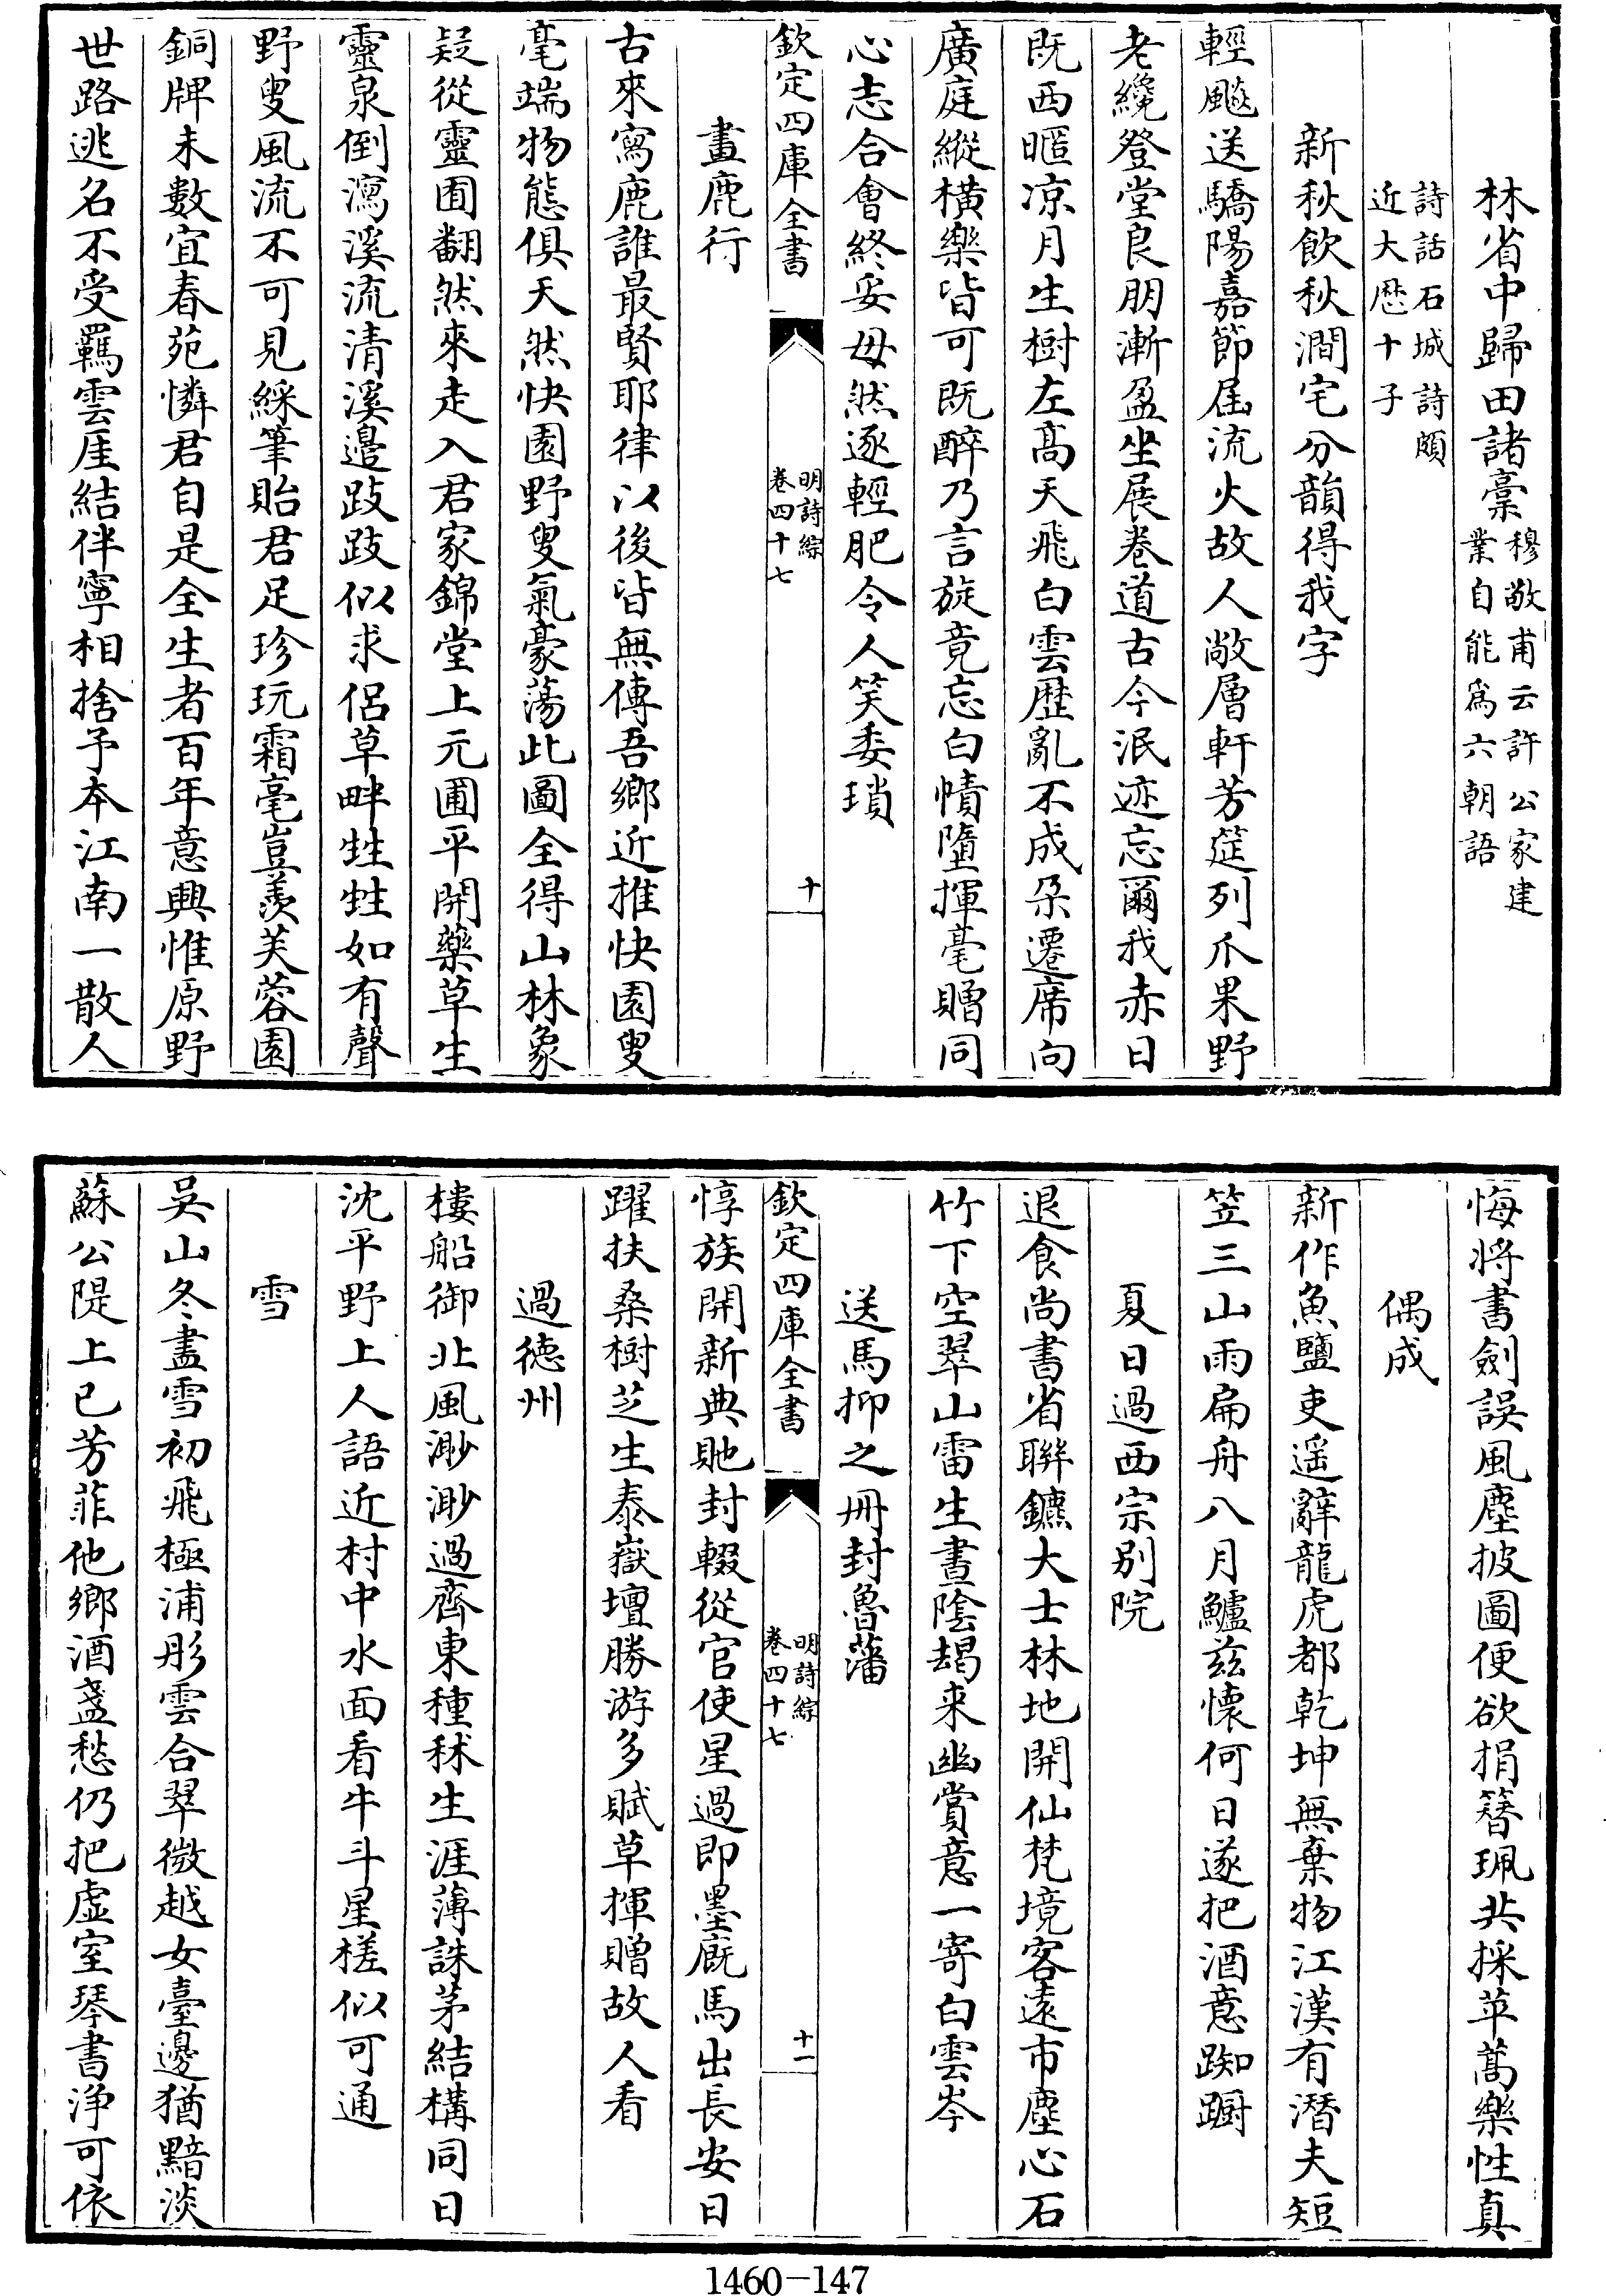 林省中歸田諸稾穆敬甫云許公家建
業自能爲六朝語
詩話石城詩頗
近大厯十子
新秋飲秋澗宅分韻得我字
輕颷送驕陽嘉節届流火故人敞層軒芳筵列爪果野
老纔登堂良朋漸盈坐展卷道古今泯迹忘爾我赤日
既西匿凉月生樹左髙天飛白雲歴亂不成朶遷席向
廣庭縱橫樂皆可既醉乃言旋竟忘白幘墮揮毫贈同
心志合會終妥毋然逐輕肥令人笑委瑣
欽定四庫全書
明詩綜
卷四十七
十
畫鹿行
古來寫鹿誰最賢耶律以後皆無傳吾鄉近推快園叟
毫端物態俱天然快園野叟氣豪蕩此圖全得山林象
疑從靈囿翻然來走入君家錦堂上元圃平開藥草生
靈泉倒瀉溪流清溪邉跂跂似求侣草畔甡甡如有聲
野叟風流不可見綵筆貽君足珍玩霜毫豈羨芙蓉園
銅牌未數宜春苑憐君自是全生者百年意興惟原野
世路逃名不受羈雲厓結伴寧相捨予本江南一散人
悔將書劍誤風塵披圖便欲捐簪珮共採苹蒿樂性真
偶成
新作魚鹽吏遥辭龍虎都乾坤無棄物江漢有潛夫短
笠三山雨扁舟八月鱸兹懷何日遂把酒意踟蹰
夏日過西宗别院
退食尚書省聨鑣大士林地開仙梵境客逺市塵心石
竹下空翠山雷生晝隂朅来幽賞意一寄白雲岑
送馬抑之冊封魯藩
欽定四庫全書
明詩綜
卷四十七
十一
惇族開新典馳封輟從官使星過即墨廐馬出長安日
躍扶桑樹芝生泰嶽壇勝游多賦草揮贈故人看
過徳州
樓船御北風渺渺過齊東種秫生涯薄誅茅結構同日
沈平野上人語近村中水面看牛斗星槎似可通
雪
吳山冬盡雪初飛極浦彤雲合翠微越女臺邊猶黯淡
蘇公隄上已芳菲他鄉酒盞愁仍把虚室琴書浄可依
1460-147